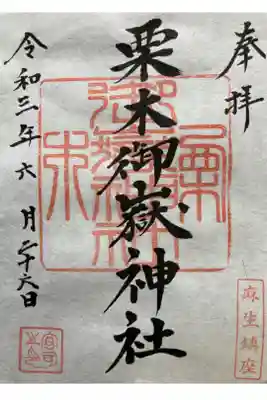 奉拝
栗木御嶽神社
令和三年六月二十六日
麻生鎮座